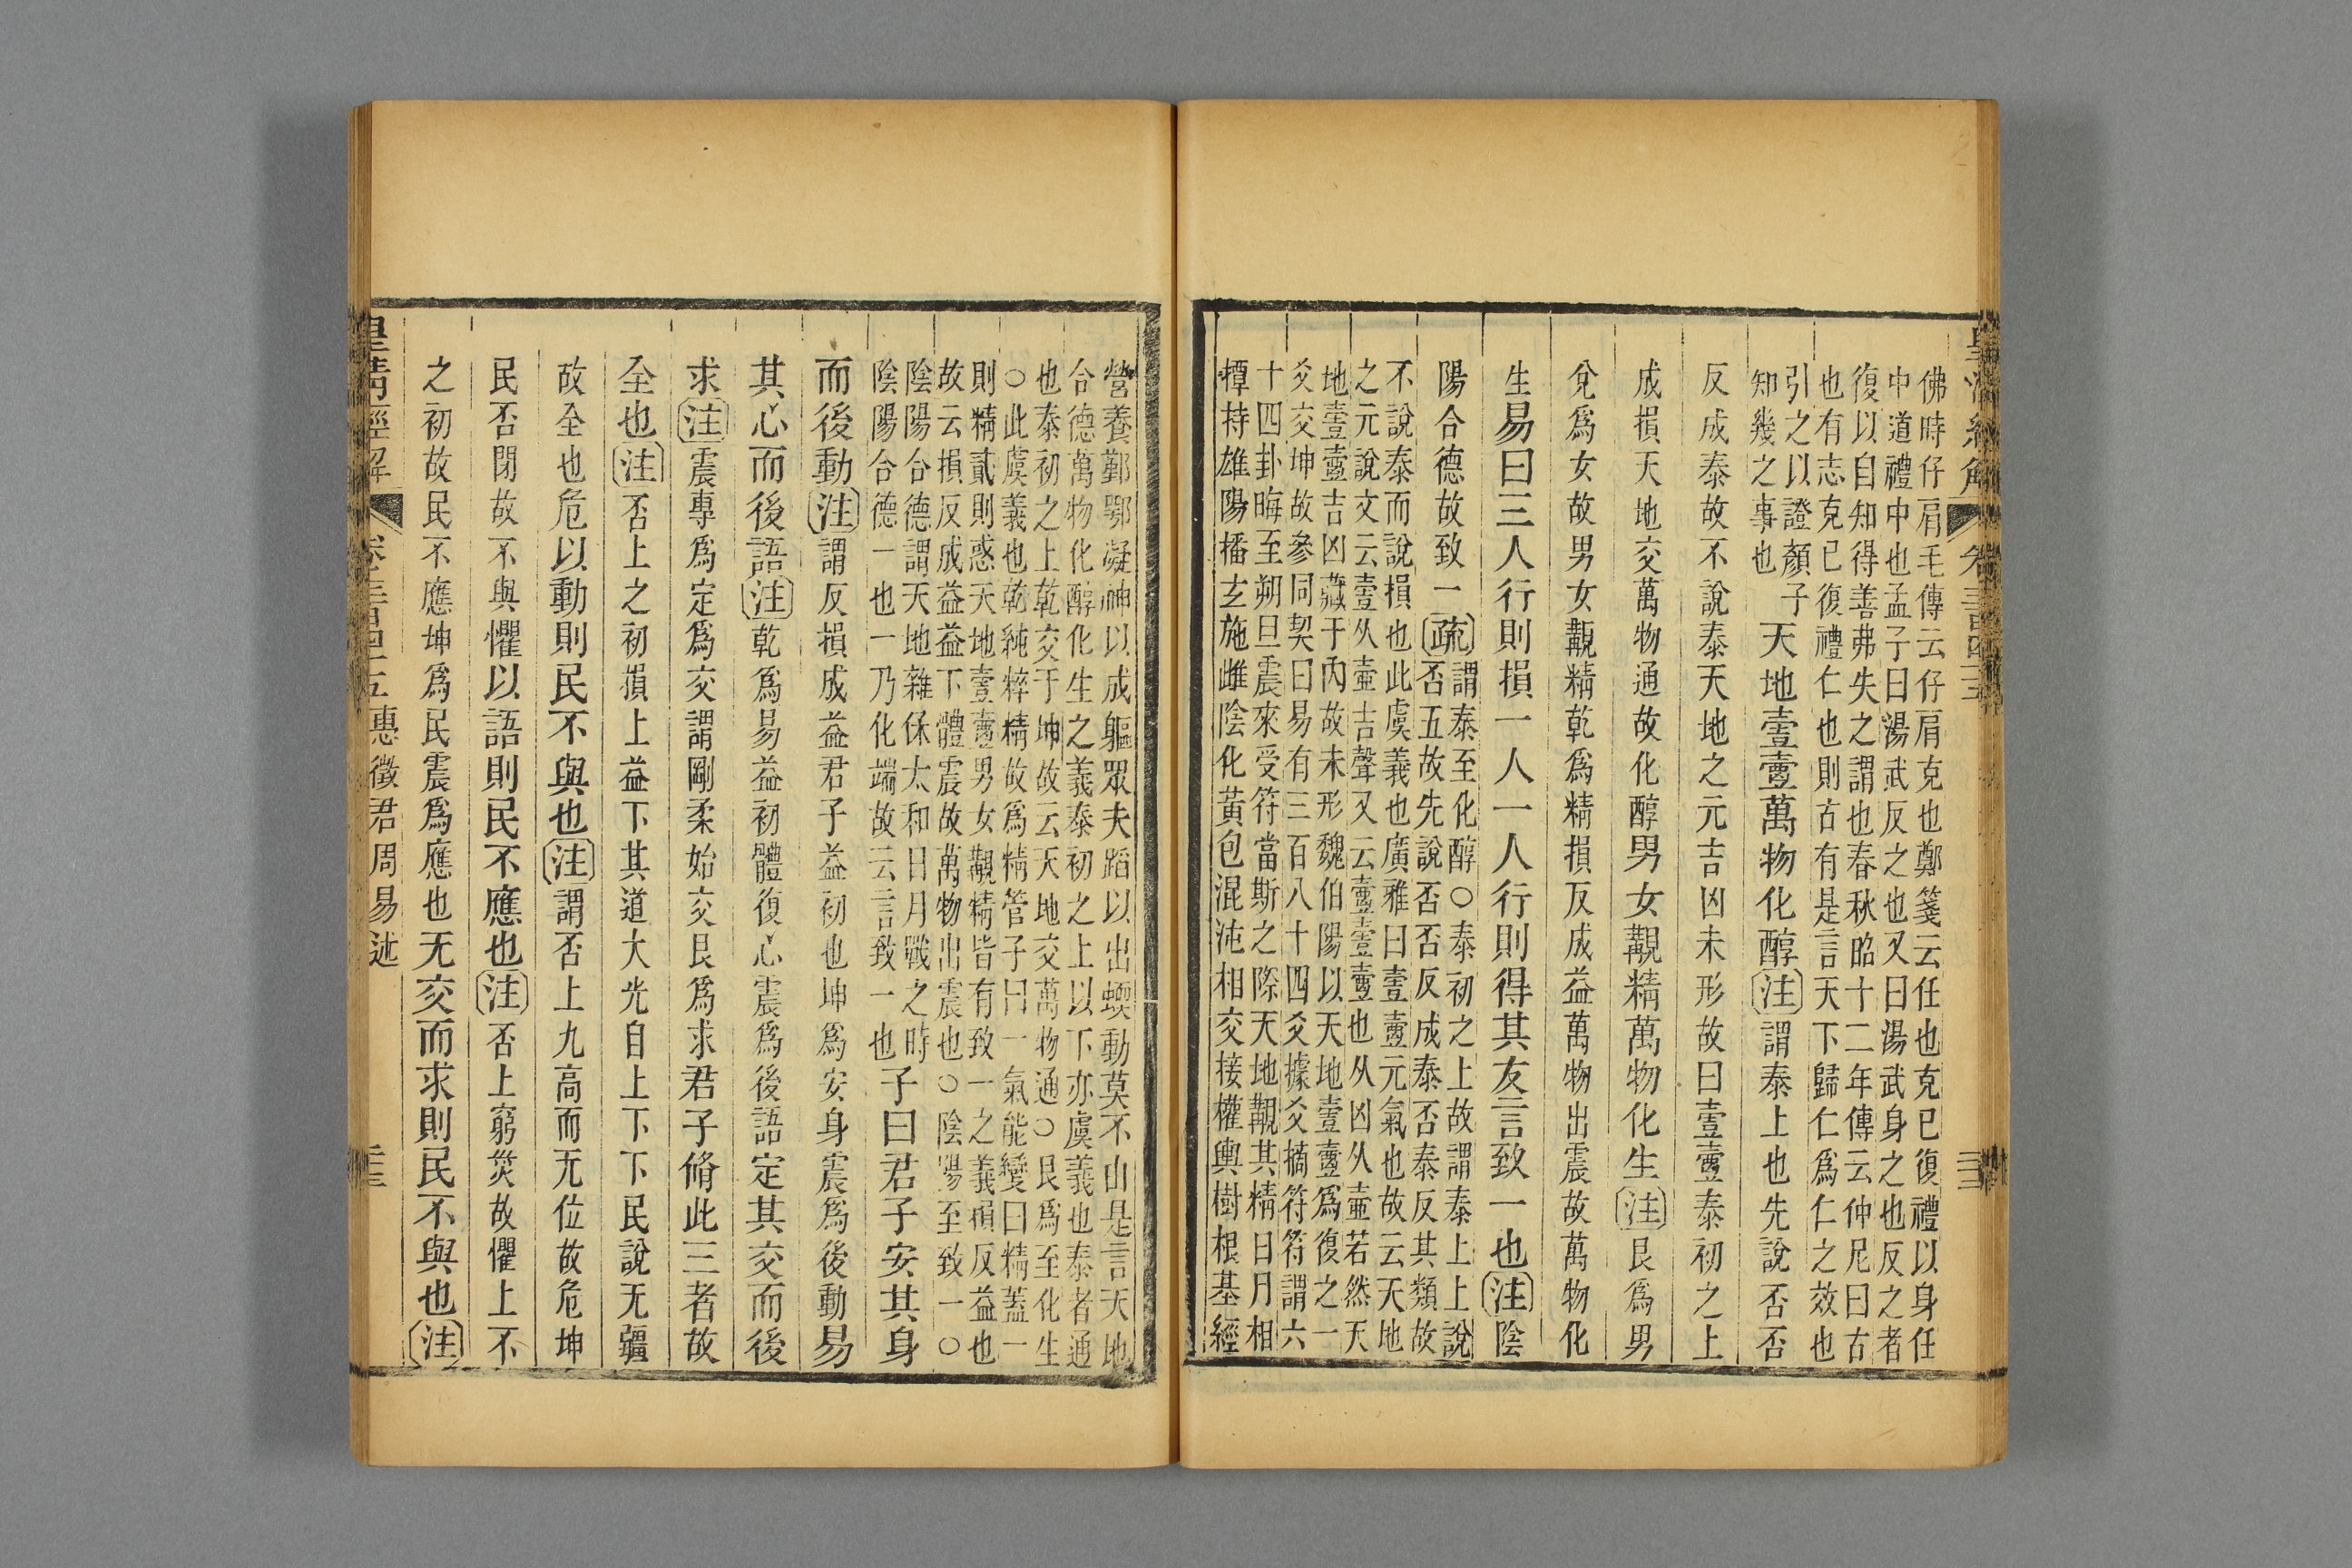 佛時仔肩毛傳云仔肩克也鄭箋云任也克已復禮以身任
中道禮中也孟子曰湯武反之也又曰湯武身之也反之者
復以自知得善弗失之謂也春秋昭十二年傳云仲尼曰古
也有志克已復禮仁也則古有是言天下歸仁爲仁之效也
引之以證顏子
知幾之事也
天地壹𡔲萬物化醇注謂泰上也先說否否
反成泰故不說泰天地之元吉凶未形故曰壹𡔲泰初之上
成損天地交萬物通故化醇男女覯精萬物化生注艮爲男
兌爲女故男女覯精乾爲精損反成益萬物出震故萬物化
生易曰三人行則損一人一人行則得其友言致一也注陰
陽合德故致一疏
謂泰至化醇○泰初之上故謂泰上上說
否五故先說否否反成泰否泰反其類故
不說泰而說損也此虞義也廣雅曰壹𡔲元氣也故云天地
之元說文云壹从壷吉聲又云𡔲壹𡔲也从凶从壷若然天
地壹𡔲吉凶藏于內故未形魏伯陽以天地壹𡔲爲復之一
爻交坤故參同契曰易有三百八十四爻據爻摘符符謂六
十四卦晦至朔旦震來受符當斯之際天地覯其精日月相
撢持雄陽播玄施雌陰化黃包混沌相交接權輿樹根基經
營養鄞鄂凝神以成軀眾夫蹈以出蝡動莫不由是言天地
合德萬物化醇化生之義泰初之上以下亦虞義也泰者通
也泰初之上乾交于坤故云天地交萬物通○艮爲至化生
○此虞義也乾純粹精故爲精管子曰一氣能變曰精蓋一
則精貳則惑天地壹𡔲男女覯精皆有致一之義損反益也
故云損反成益益下體震故萬物出震也○陰陽至致一○
陰陽合德謂天地雜保太和日月戰之時
陰陽合德一也一乃化端故云言致一也
子曰君子安其身
而後動注謂反損成益君子益初也坤爲安身震爲後動易
其心而後語注乾爲易益初體復心震爲後語定其交而後
求注震專爲定爲交謂剛柔始交艮爲求君子脩此三者故
全也注否上之初損上益下其道大光自上下下民說无疆
故全也危以動則民不與也注謂否上九高而无位故危坤
民否閉故不與懼以語則民不應也注否上窮災故懼上不
之初故民不應坤爲民震爲應也无交而求則民不與也注
皇清經解
惠徵君周易述